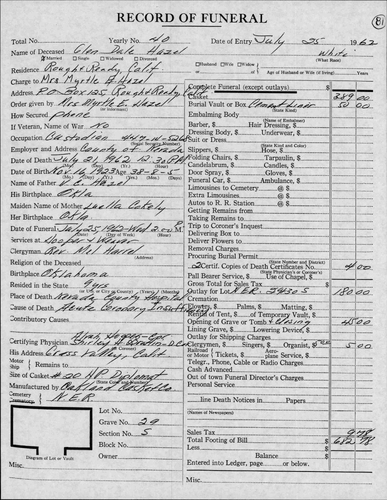 RECORD OF FUNERAL
81
Total No. Yearly No. 40 Date of Entry July 25 1962
Name of Deceased Glen Dale Hazel White
(What Race)
Married Single Widowed Divorced Husband Wife Widow
Residence Rough & Ready, Calif Age of Husband or Wife (if living) Years
Charge to Mrs Myrtle E. Hazel
Address P.O Box 125, Rough & Ready
Order given by Mrs Myrtle E. Hazel
How Secured phone
If Veteran, Name of War no
Occupation Custodian
(Social Security Number)
Employer and Address County of Nevada
Date of Death July 21, 1962 12:30 PM
Date of Birth Nov 16 1923 Age 38-8-5
Name of Father V. E. Hazel
His Birthplace Okla
Maiden Name of Mother Luella
Her Birthplace Okla
Date of Funeral July 25, 1962 Wed. 2:00 P
Services at Hooper & Weaver
Clergyman Rev
Religion of the Deceased
Birthplace Oklahoma
Resided in the State 9 yrs
Place of Death Nevada County Hospital
Cause of Death Acute Coronary
Contributory Causes
Certifying Physician
His Address Grass Valley, Calif
Motor Ship Remains to
Size of Casket
(State Color and Number)
Manufactured by Oakland Casket Co
Cemetery Crematory N.E.R.
Lot No.
Grave No. 29
Section No. 5
Block No.
Owner
Diagram of Lot or Vault
Misc.
Complete Funeral (except outlays) $
Casket 389.00
Burial Vault or Box 50.00
Embalming Body
Barber, $ Hair Dressing, $
Dressing Body, $ Underwear, $
Suit or Dress
(State Kind and Color)
Slippers, $ Hose, $
Folding Chairs, $ Tarpaulin, $
Candelabrum, $ Candles, $
Door Spray, $ Gloves, $
Funeral Car, $ Ambulance, $
Limousines to Cemetery @ $
Extra Limousines @ $
Autos to R. R. Station @ $
Getting Remains from
Taking Remains to
Trip to Coroner's Inquest
Delivering Box to
Deliver Flowers to
Removal Charges
Procuring Burial Permit
(State Number and District)
2 Certif. Copies of Death Certificates No. 4.00
Pall Bearer Service, $ Use of Chapel, $
Gross Total for Sales Tax $
Outlay for Lot N.E.R. 180.00
Cremation
Flowers, $ Palms, $ Matting, $
Rental of Tent, $ of Temporary Vault, $
Opening of Grave or Tomb 45.00
Lining Grave, $ Lowering Device, $
Outlay for Shipping Charges
Clergymen, $ Singers, $ Organist, $ 5.00
Railroad or Motor Tickets, $ Aeroplane Service, $
Telegr., Phone, Cable or Radio Charges
Cash Advanced
Out of town Funeral Director's Charges
Personal Service
line Death Notices in Papers
(Name of Newspapers)
Sales Tax 9.78
Total Footing of Bill $ 682.78
Less $
Balance $
Entered into Ledger, page or below.
Misc.